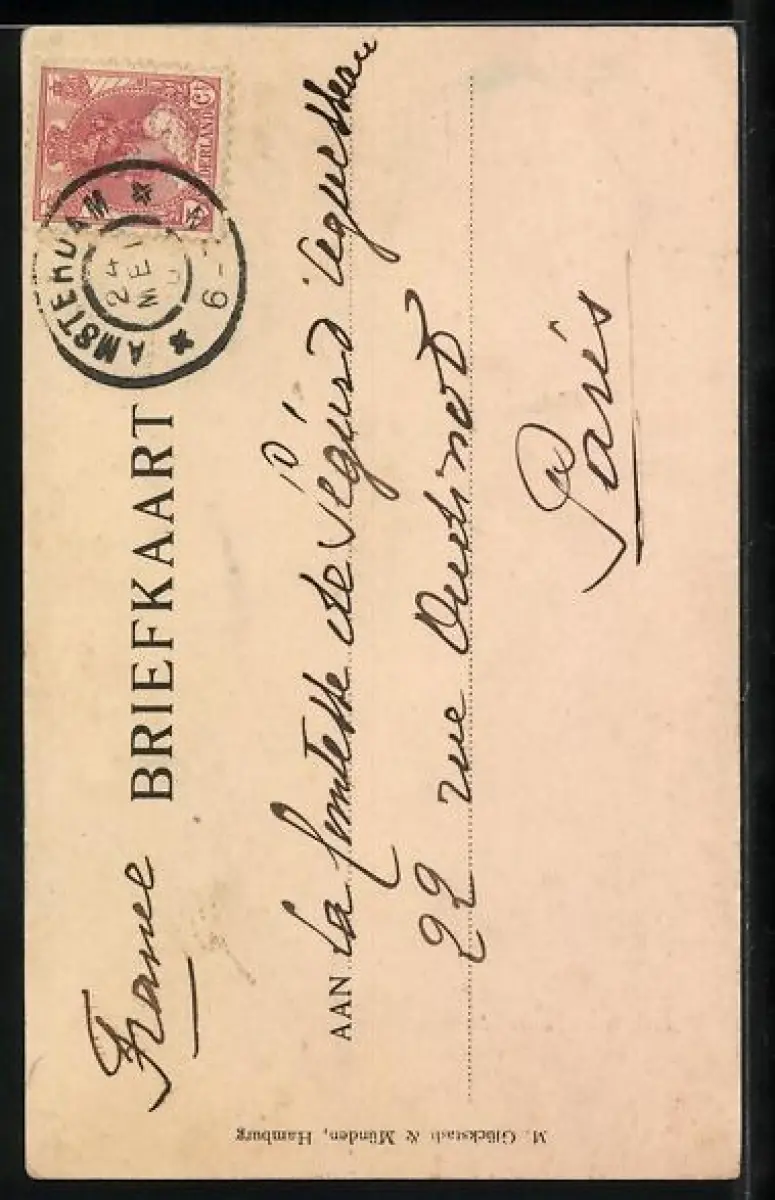 NEDERLAND
AMSTERDAM
24 MEI
6-7
BRIEFKAART
France
AAN La Comtesse de Ségur d'Aguesseau
22 rue Oudinot
Paris
M. Glückstadt & Münden, Hamburg